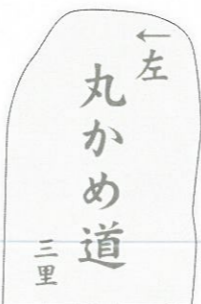 ←左
丸かめ道
三里